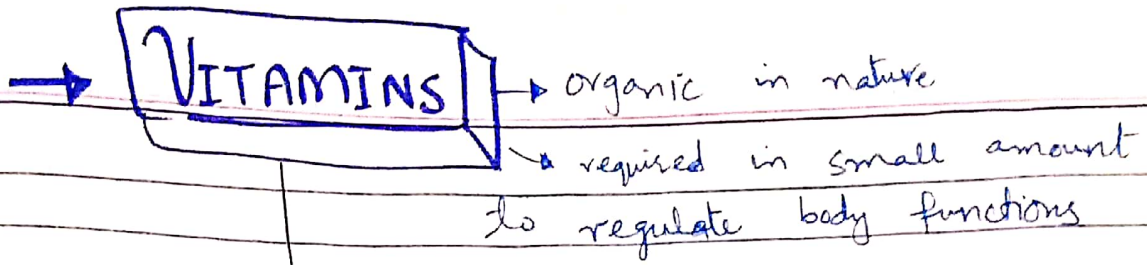 → VITAMINS → organic in nature
→ required in small amount
to regulate body functions